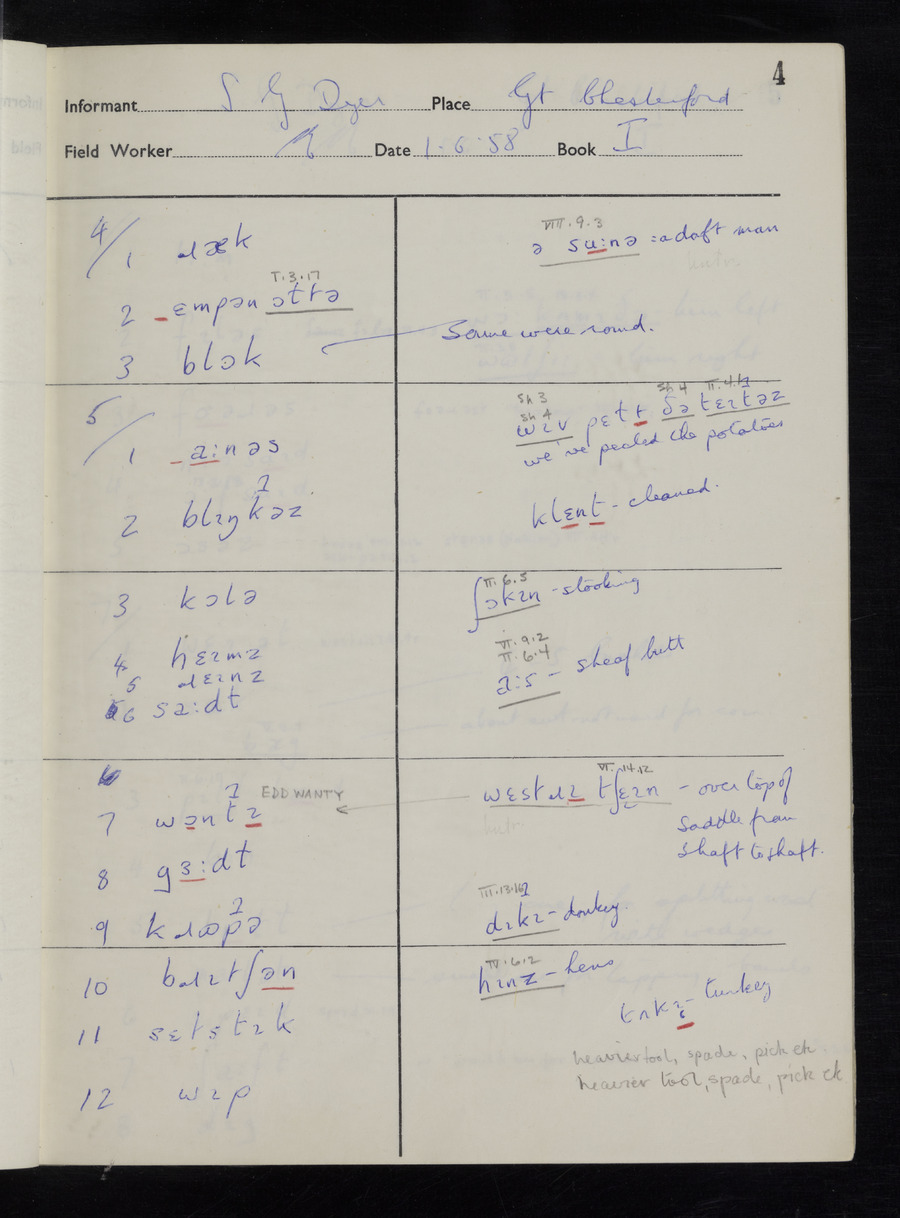 4
Informant S G Dyer Place Gt Chesterford
Field Worker Date 1.6.58 Book I
4/
1 ɹæk
VIII.9.3
ə sɑːnə : a daft man
I.3.17
2 ɛmpən ɔttə
3 blɔk
Some were round.
5/
1 aːnəs
2 blɪŋkəz
Sh 3
Sh 4
Sh 4 II.4.1
wɪv pɛtt ðə tɛɪtəz
we've peeled the potatoes
klɛnt - cleaned.
3 kɔlə
4 hɛɪmz
5 ɹɛɪnz
6 saːdt
II.6.5
ʃɔkɪn - stooking
VI.9.2
II.6.4
aːs - sheaf butt
7 wɔntɪ
EDD WANTY
8 gɜːdt
9 kɹɒpə
VI.14.12
wɛstɹɪ tʃɛɪn - over top of
saddle from
shaft to shaft.
III.13.16
dɪkɪ - donkey.
10 bɹɪtʃən
11 sɛtstɪk
12 wɪp
IV.6.2
hɪnz - hens
tʌkɪ - turkey
heavier tool, spade, pick etc
heavier tool, spade, pick etc